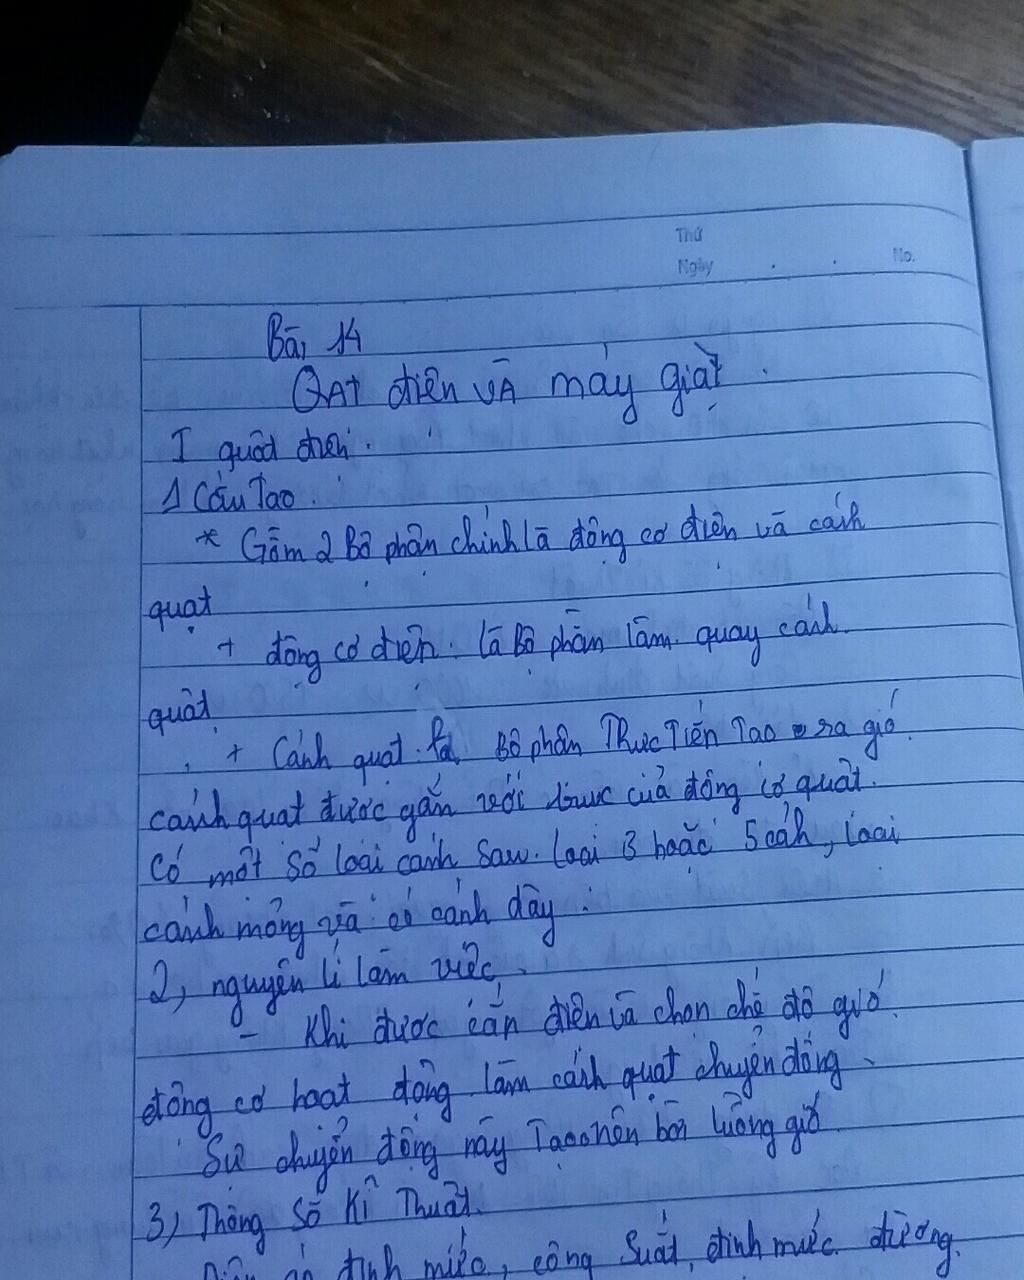 Thứ
Ngày . . No.
Bài 14
QAT điện và máy giặt.
I quật điện.
1 Cấu Tạo.
* Gồm 2 Bộ phận chính là động cơ điện và cánh
quạt
+ động cơ điện. là Bộ phận làm quay cánh
quạt
+ Cánh quạt là Bộ phận Thực Tiến Tạo ra gió.
cánh quạt được gắn với trục của động cơ quạt.
Có một số loại cánh sau. loại 3 hoặc 5 cáh, loại
cánh mỏng và có cánh dày.
2, nguyên lí làm việc.
- Khi được cấp điện và chọn chế độ gió.
động cơ hoạt động làm cánh quạt chuyển động.
Sự chuyển động này Tạo nên luồng gió
3, Thông Số Kĩ Thuật.
Điện áp định mức, công Suất định mức. đường.